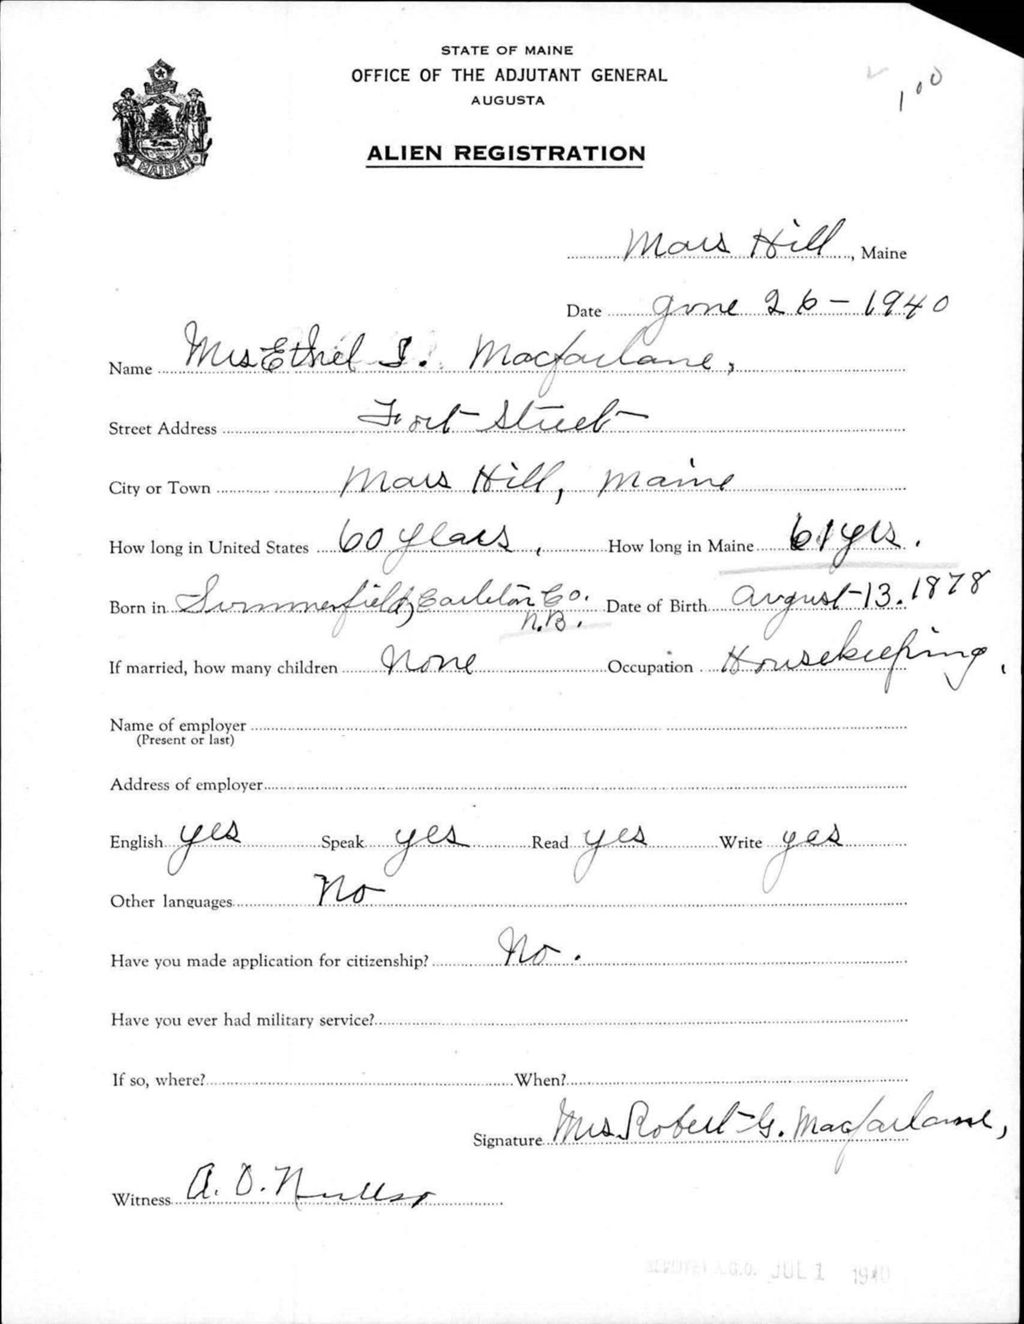 STATE OF MAINE
OFFICE OF THE ADJUTANT GENERAL
AUGUSTA
1.00
ALIEN REGISTRATION
MAINE
Mars Hill, Maine
Date June 26-1940
Name Mrs Ethel I. Macfarlane,
Street Address Fort Street
City or Town Mars Hill, Maine
How long in United States 60 years, How long in Maine 61 yrs.
Born in Summerfield, Carleton Co. N.B. Date of Birth August-13.1878
If married, how many children None Occupation Housekeeping,
Name of employer
(Present or last)
Address of employer
English yes Speak yes Read yes Write yes
Other languages No
Have you made application for citizenship? No.
Have you ever had military service?
If so, where? When?
Signature Mrs Robert G. Macfarlane,
Witness A. O.
A.G.O. JUL 1 1940